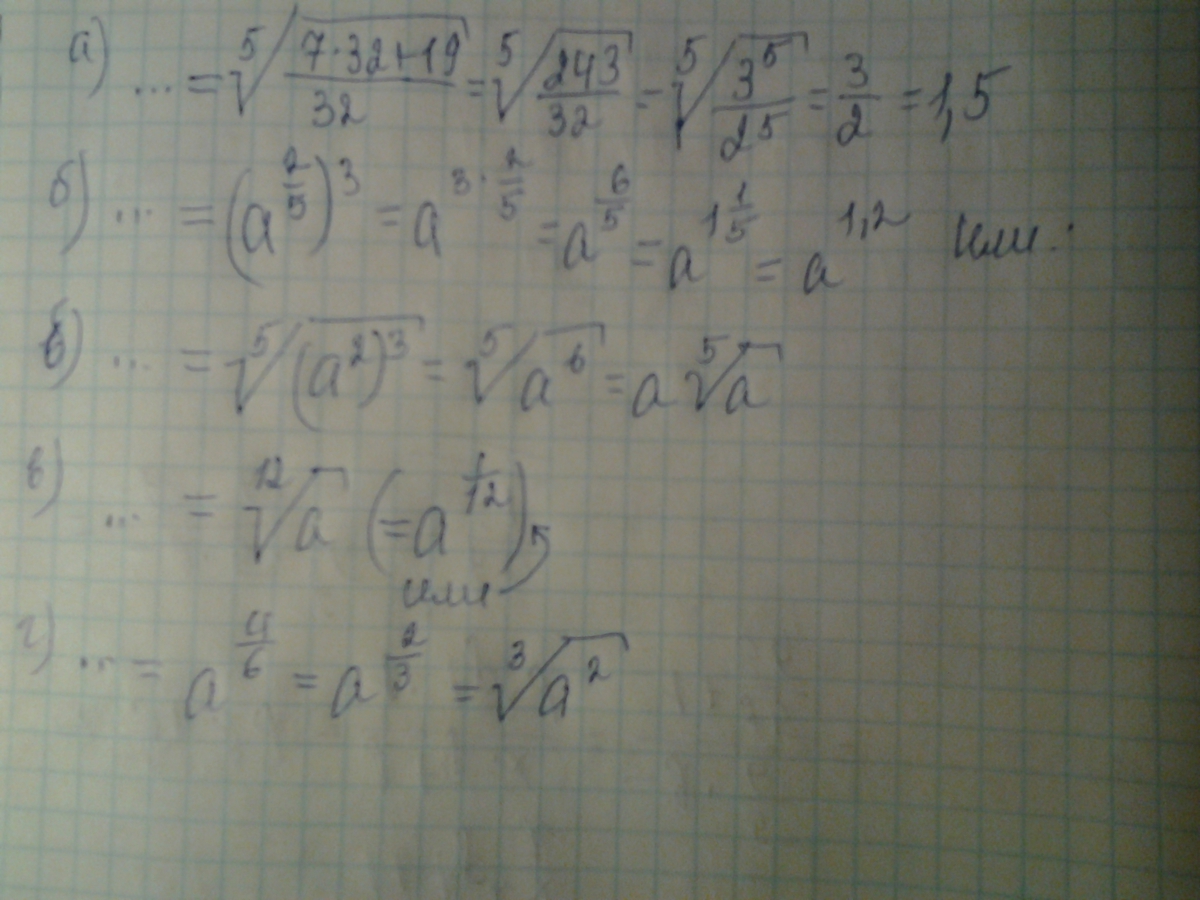 а) ... = ⁵√((7·32+19)/32) = ⁵√(243/32) = ⁵√(3⁵/2⁵) = 3/2 = 1,5
б) ... = (a^(2/5))³ = a^(3·2/5) = a^(6/5) = a^(1 1/5) = a^(1,2) или:
б) ... = ⁵√((a²)³) = ⁵√(a⁶) = a ⁵√a
в) ... = ¹²√a (= a^(1/12))
или
г) ... = a^(4/6) = a^(2/3) = ³√(a²)